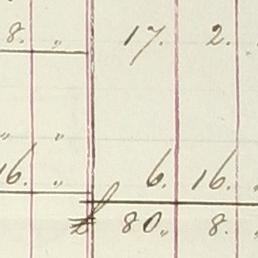 8. " 17. 2.
" "
16. " 6. 16. "
£ 80 " 8. "